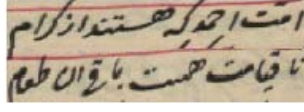 امت احمد که هستند از کرام
تا قیامت هست باقی ان طعام